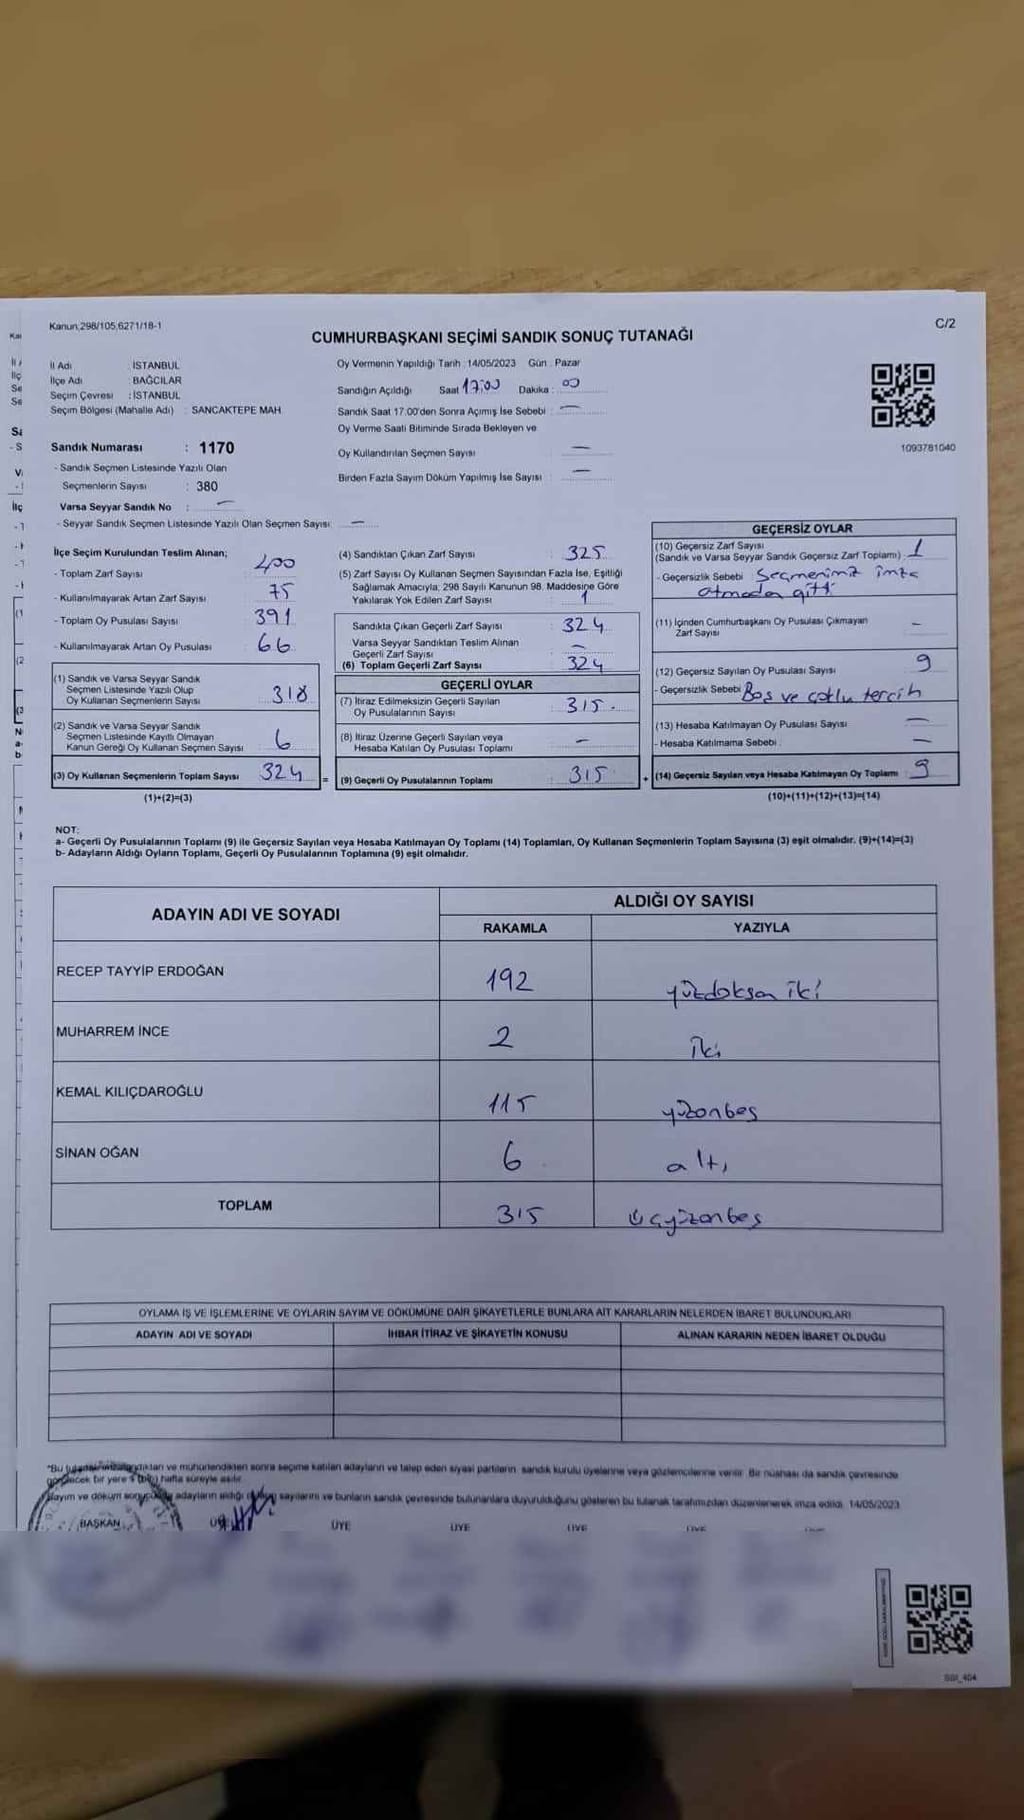 Kanun,298/105,6271/18-1
C/2
CUMHURBAŞKANI SEÇİMİ SANDIK SONUÇ TUTANAĞI
İl Adı : İSTANBUL
İlçe Adı : BAĞCILAR
Seçim Çevresi : İSTANBUL
Seçim Bölgesi (Mahalle Adı) : SANCAKTEPE MAH.
Sandık Numarası : 1170
- Sandık Seçmen Listesinde Yazılı Olan
Seçmenlerin Sayısı : 380
Varsa Seyyar Sandık No : —
- Seyyar Sandık Seçmen Listesinde Yazılı Olan Seçmen Sayısı: —
Oy Vermenin Yapıldığı Tarih : 14/05/2023 Gün : Pazar
Sandığın Açıldığı Saat 17:00 Dakika : 00
Sandık Saat 17.00'den Sonra Açımış İse Sebebi : —
Oy Verme Saati Bitiminde Sırada Bekleyen ve
Oy Kullandırılan Seçmen Sayısı : —
Birden Fazla Sayım Döküm Yapılmış İse Sayısı : —
1093781040
İlçe Seçim Kurulundan Teslim Alınan;
- Toplam Zarf Sayısı : 400
- Kullanılmayarak Artan Zarf Sayısı : 75
- Toplam Oy Pusulası Sayısı : 391
- Kullanılmayarak Artan Oy Pusulası : 66
(1) Sandık ve Varsa Seyyar Sandık
Seçmen Listesinde Yazılı Olup
Oy Kullanan Seçmenlerin Sayısı : 318
(2) Sandık ve Varsa Seyyar Sandık
Seçmen Listesinde Kayıtlı Olmayan
Kanun Gereği Oy Kullanan Seçmen Sayısı : 6
(3) Oy Kullanan Seçmenlerin Toplam Sayısı : 324
(1)+(2)=(3)
(4) Sandıktan Çıkan Zarf Sayısı : 325
(5) Zarf Sayısı Oy Kullanan Seçmen Sayısından Fazla İse, Eşitliği
Sağlamak Amacıyla, 298 Sayılı Kanunun 98. Maddesine Göre
Yakılarak Yok Edilen Zarf Sayısı : 1
Sandıkta Çıkan Geçerli Zarf Sayısı : 324
Varsa Seyyar Sandıktan Teslim Alınan
Geçerli Zarf Sayısı : —
(6) Toplam Geçerli Zarf Sayısı : 324
GEÇERLİ OYLAR
(7) İtiraz Edilmeksizin Geçerli Sayılan
Oy Pusulalarının Sayısı : 315
(8) İtiraz Üzerine Geçerli Sayılan veya
Hesaba Katılan Oy Pusulası Toplamı : —
(9) Geçerli Oy Pusulalarının Toplamı : 315
GEÇERSİZ OYLAR
(10) Geçersiz Zarf Sayısı
(Sandık ve Varsa Seyyar Sandık Geçersiz Zarf Toplamı) : 1
- Geçersizlik Sebebi : Seçmenimiz imza
atmadan gitti
(11) İçinden Cumhurbaşkanı Oy Pusulası Çıkmayan
Zarf Sayısı : —
(12) Geçersiz Sayılan Oy Pusulası Sayısı : 9
- Geçersizlik Sebebi : Boş ve çoklu tercih
(13) Hesaba Katılmayan Oy Pusulası Sayısı : —
- Hesaba Katılmama Sebebi : —
(14) Geçersiz Sayılan veya Hesaba Katılmayan Oy Toplamı : 9
(10)+(11)+(12)+(13)=(14)
NOT:
a- Geçerli Oy Pusulalarının Toplamı (9) ile Geçersiz Sayılan veya Hesaba Katılmayan Oy Toplamı (14) Toplamları, Oy Kullanan Seçmenlerin Toplam Sayısına (3) eşit olmalıdır. (9)+(14)=(3)
b- Adayların Aldığı Oyların Toplamı, Geçerli Oy Pusulalarının Toplamına (9) eşit olmalıdır.
ADAYIN ADI VE SOYADI
ALDIĞI OY SAYISI
RAKAMLA YAZIYLA
RECEP TAYYİP ERDOĞAN 192 yüzdoksan iki
MUHARREM İNCE 2 İki
KEMAL KILIÇDAROĞLU 115 yüzonbeş
SİNAN OĞAN 6 altı
TOPLAM 315 üçyüzonbeş
OYLAMA İŞ VE İŞLEMLERİNE VE OYLARIN SAYIM VE DÖKÜMÜNE DAİR ŞİKAYETLERLE BUNLARA AİT KARARLARIN NELERDEN İBARET BULUNDUKLARI
ADAYIN ADI VE SOYADI İHBAR İTİRAZ VE ŞİKAYETİN KONUSU ALINAN KARARIN NEDEN İBARET OLDUĞU
"Bu tutanak imzalandıktan ve mühürlendikten sonra seçime katılan adayların ve talep eden siyasi partilerin, sandık kurulu üyelerine veya gözlemcilerine verilir. Bir nüshası da sandık çevresinde
görülecek bir yere 1 (bir) hafta süreyle asılır.
Sayım ve döküm sonucunda adayların aldığı oyların sayılarını ve bunların sandık çevresinde bulunanlara duyurulduğunu gösteren bu tutanak tarafımızdan düzenlenerek imza edildi. 14/05/2023
BAŞKAN ÜYE ÜYE ÜYE ÜYE